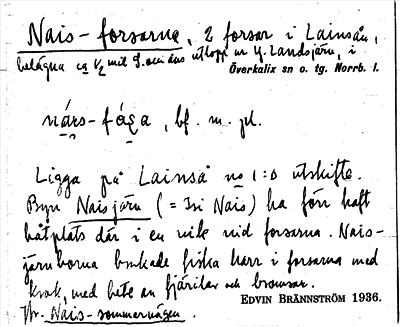 Nais-forsarna, 2 forsar i Lainsån,
belägna ca 1/2 mil S. om dess utlopp ur Y. Landsjärv, i
Överkalix sn o. tg. Norrb. l.
bf. m. pl.
Ligga på Lainså no 1:0 utskifte.
Byn Naisjärv (= Isi Nais) ha förr haft
båtplats där i en vik vid forsarna. Nais-
järvborna brukade fiska harr i forsarna med
krok, med bete av fjärilar och bromsar.
EDVIN BRÄNNSTRÖM 1936.
Nais-sommarvägen.